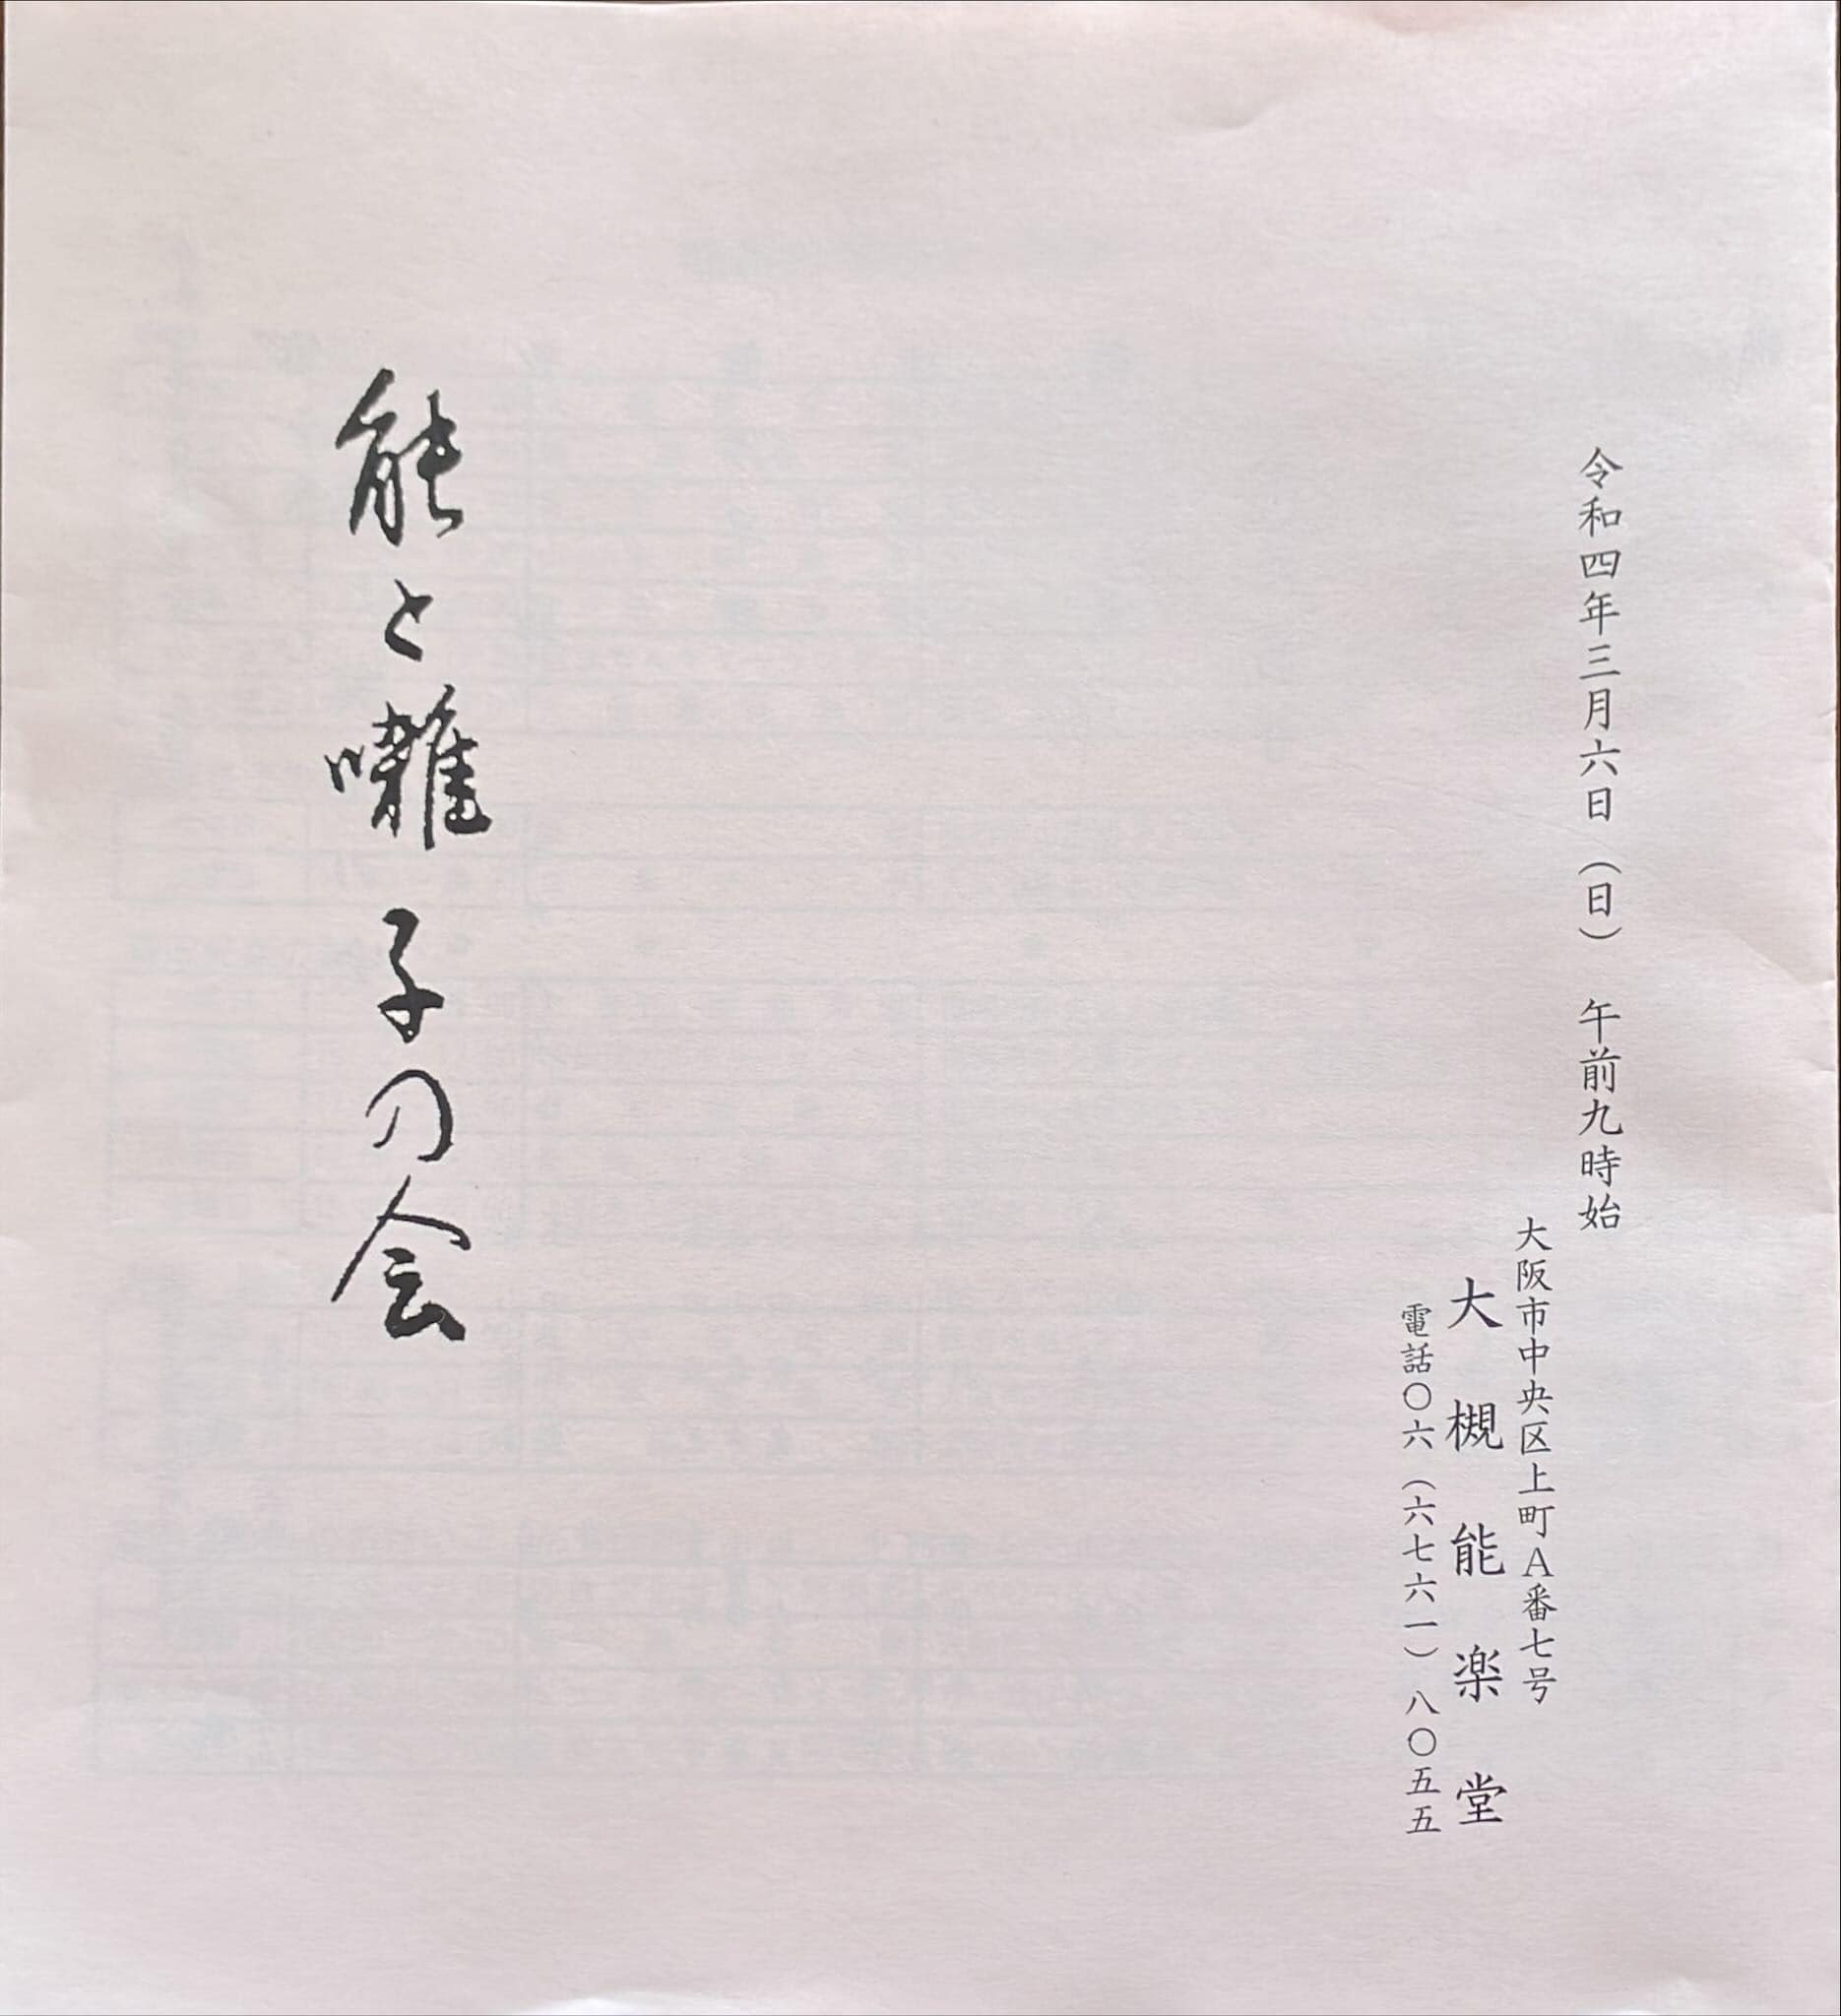 令和四年三月六日（日）　午前九時始
大阪市中央区上町A番七号
大槻能楽堂
電話〇六（六七六一）八〇五五
能と囃子の会